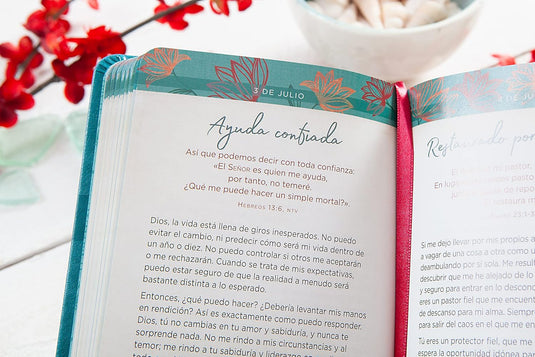 3 DE JULIO
Ayuda confiada
Así que podemos decir con toda confianza:
«El SEÑOR es quien me ayuda,
por tanto, no temeré.
¿Qué me puede hacer un simple mortal?».
HEBREOS 13:6, NTV
Dios, la vida está llena de giros inesperados. No puedo
evitar el cambio, ni predecir cómo será mi vida dentro de
un año o diez. No puedo controlar si otros me aceptarán
o me rechazarán. Cuando se trata de mis expectativas,
puedo estar seguro de que la realidad a menudo será
bastante distinta a lo esperado.
Entonces, ¿qué puedo hacer? ¿Debería levantar mis manos
en rendición? Así es exactamente como puedo responder.
Dios, tú no cambias en tu amor y sabiduría, y nunca te
sorprende nada. No me rindo a mis circunstancias y al
temor; me rindo a tu sabiduría y liderazgo en
4 DE JULIO
Restaurado por
El es mi pastor,
En lugares
de reposo
restaura m
23:1-3
Si me dejo llevar por mis propios a
a vagar de una cosa a otra como u
deambulando por sí sola. Me result
descubrir que me he alejado de lo
y seguro para entrar en lo desconoc
eres un pastor fiel que me encuentr
de descanso para mi alma. Siempre
para salir del caos en el que me en
Tú eres un protector fiel, que me
espera la oportunidad idónea para